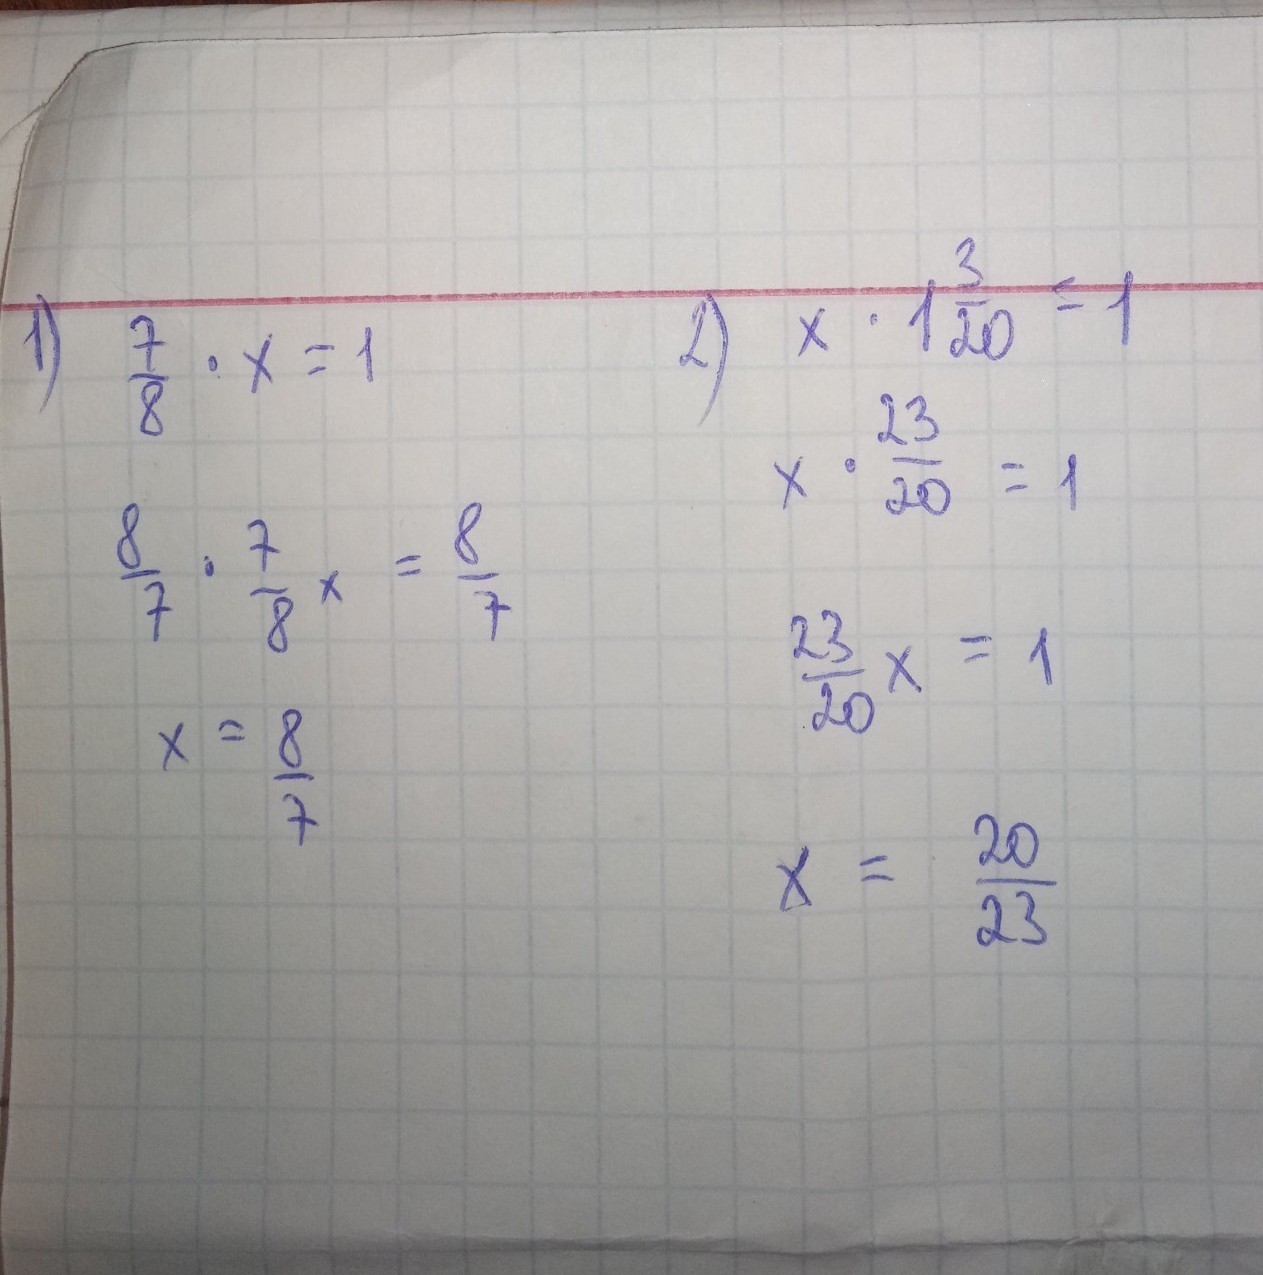 1) 7/8 · x = 1
8/7 · 7/8 x = 8/7
x = 8/7
2) x · 1 3/20 = 1
x · 23/20 = 1
23/20 x = 1
x = 20/23